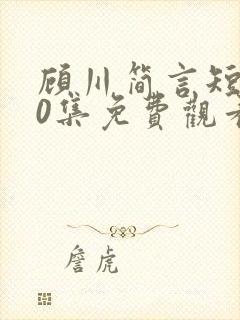 顾川简言短
0集免费觀看
詹虎